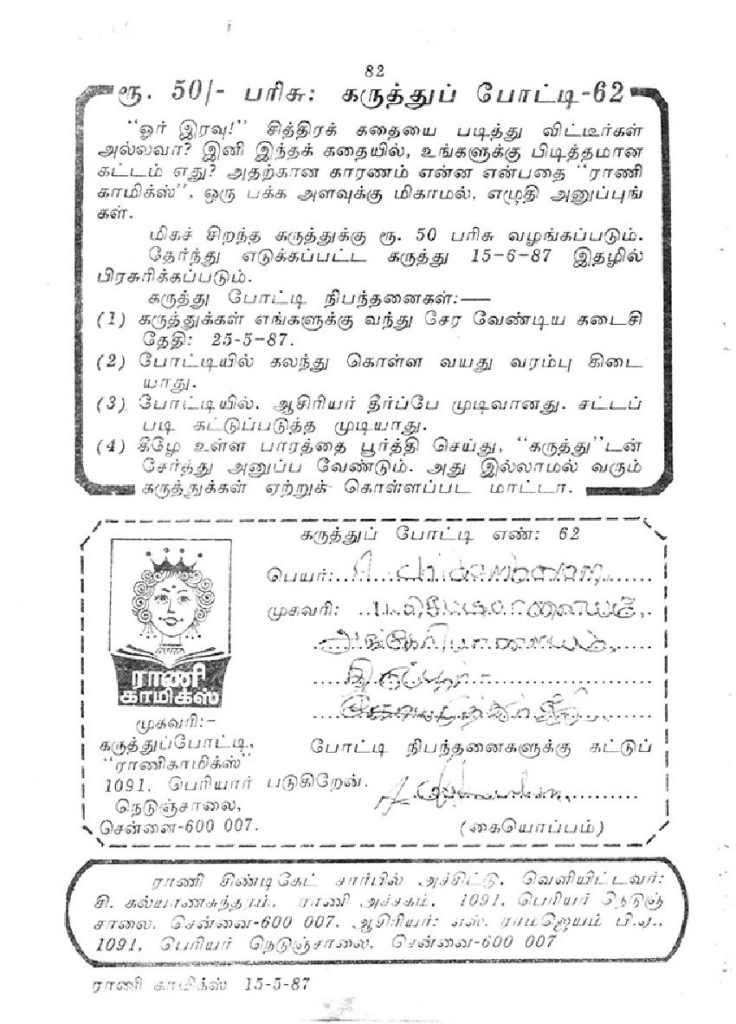 82
ரூ. 50/- பரிசு: கருத்துப் போட்டி-62
"ஓர் இரவு!" சித்திரக் கதையை படித்து விட்டீர்கள்
அல்லவா? இனி இந்தக் கதையில், உங்களுக்கு பிடித்தமான
கட்டம் எது? அதற்கான காரணம் என்ன என்பதை "ராணி
காமிக்ஸ்", ஒரு பக்க அளவுக்கு மிகாமல், எழுதி அனுப்புங்
கள்.
மிகச் சிறந்த கருத்துக்கு ரூ. 50 பரிசு வழங்கப்படும்.
தேர்ந்து எடுக்கப்பட்ட கருத்து 15-6-87 இதழில்
பிரசுரிக்கப்படும்.
கருத்து போட்டி நிபந்தனைகள்:—
(1) கருத்துக்கள் எங்களுக்கு வந்து சேர வேண்டிய கடைசி
தேதி: 25-5-87.
(2) போட்டியில் கலந்து கொள்ள வயது வரம்பு கிடை
யாது.
(3) போட்டியில், ஆசிரியர் தீர்ப்பே முடிவானது. சட்டப்
படி கட்டுப்படுத்த முடியாது.
(4) கீழே உள்ள பாரத்தை பூர்த்தி செய்து, "கருத்து"டன்
சேர்த்து அனுப்ப வேண்டும். அது இல்லாமல் வரும்
கருத்துக்கள் ஏற்றுக் கொள்ளப்பட மாட்டா.
கருத்துப் போட்டி எண்: 62
பெயர்: A. Chidambaram
முகவரி:
திருப்பூர்
ராணி
காமிக்ஸ்
முகவரி:-
கருத்துப்போட்டி,
"ராணிகாமிக்ஸ்"
1091, பெரியார்
நெடுஞ்சாலை,
சென்னை-600 007.
போட்டி நிபந்தனைகளுக்கு கட்டுப்
படுகிறேன்.
(கையொப்பம்)
ராணி சிண்டிகேட் சார்பில் அச்சிட்டு, வெளியிட்டவர்:
சி. கல்யாணசுந்தரம், ராணி அச்சகம், 1091, பெரியர் நெடுஞ்
சாலை, சென்னை-600 007. ஆசிரியர்: எஸ். ராமஜெயம் பி.ஏ.,
1091, பெரியர் நெடுஞ்சாலை, சென்னை-600 007
ராணி காமிக்ஸ் 15-5-87